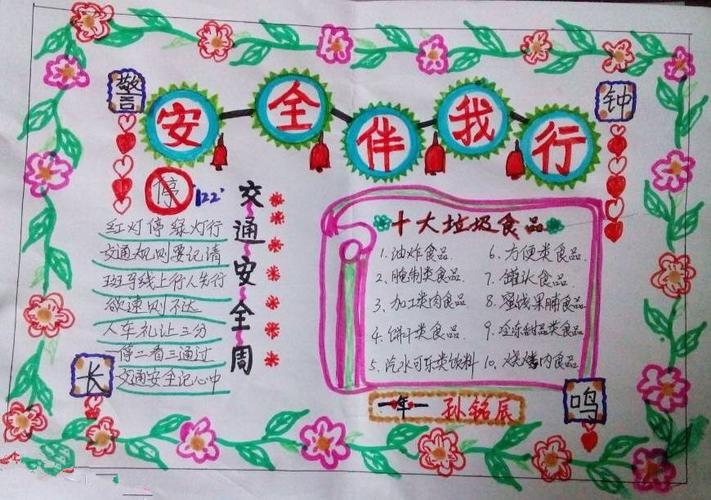 警
安全伴我行
钟
停 122
红灯停绿灯行
交通规则要记请
斑马线上行人先行
欲速则不达
人车礼让三分
停二看三通过
交通安全记心中
交通安全周
十大垃圾食品
1.油炸食品
2.腌制类食品
3.加工类肉食品
4.饼干类食品
5.汽水可乐类饮料
6.方便类食品
7.罐头食品
8.蜜饯果脯食品
9.冷冻甜品类食品
10.烧烤肉食品
长
鸣
一年一 孙铭